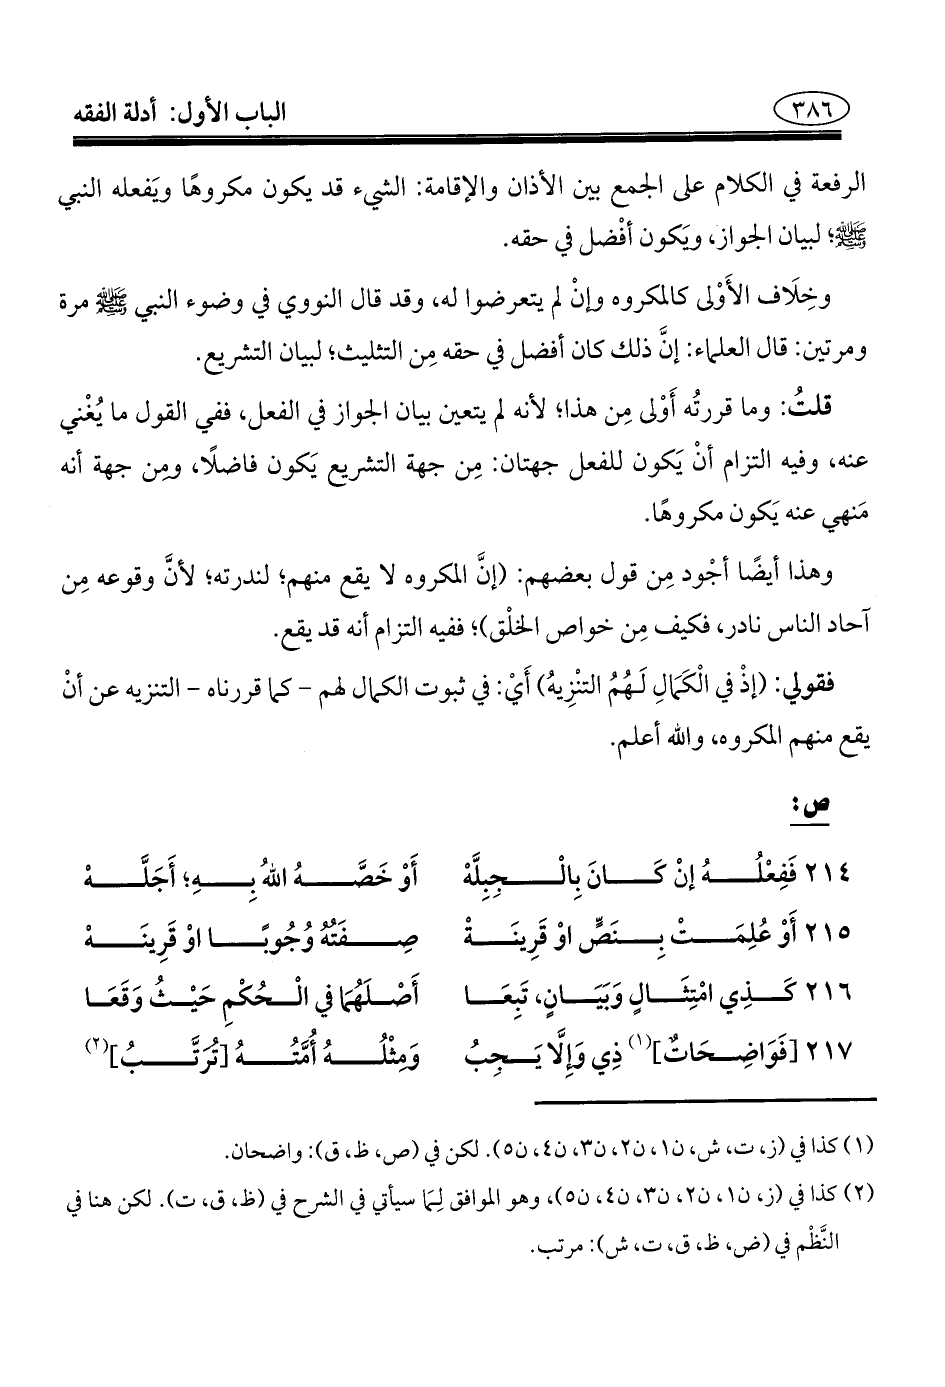 ٣٨٦ الباب الأول: أدلة الفقه
الرفعة في الكلام على الجمع بين الأذان والإقامة: الشيء قد يكون مكروهًا ويَفعله النبي
ﷺ؛ لبيان الجواز، ويَكون أفْضل في حقه.
وخِلَاف الأَوْلى كالمكروه وإنْ لم يتعرضوا له، وقد قال النووي في وضوء النبي ﷺ مرة
ومرتين: قال العلماء: إنَّ ذلك كان أفضل في حقه مِن التثليث؛ لبيان التشريع.
قلتُ: وما قررتُه أَوْلى مِن هذا؛ لأنه لم يتعين بيان الجواز في الفعل، ففي القول ما يُغْني
عنه، وفيه التزام أنْ يَكون للفعل جهتان: مِن جهة التشريع يَكون فاضلًا، ومِن جهة أنه
مَنهي عنه يَكون مكروهًا.
وهذا أيضًا أجْود مِن قول بعضهم: (إنَّ المكروه لا يقع منهم؛ لندرته؛ لأنَّ وقوعه مِن
آحاد الناس نادر، فكيف مِن خواص الخلْق)؛ ففيه التزام أنه قد يقع.
فقولي: (إذْ في الْكَمَالِ لَهُمُ التنْزِيهُ) أَيْ: في ثبوت الكمال لهم - كما قررناه - التنزيه عن أنْ
يقع منهم المكروه، والله أعلم.
ص:
٢١٤ فَفِعْلُـهُ إنْ كَـانَ بِالْـجِبِلَّهْ أَوْ خَصَّـهُ اللهُ بِـهِ؛ أَجَلَّـهْ
٢١٥ أَوْ عُلِمَـتْ بِـنَصٍّ اوْ قَرِينَـةْ صِـفَتُهُ وُجُوبًـا اوْ قَرِينَـهْ
٢١٦ كَـذِي امْتِثَـالٍ وَبَيَـانٍ، تَبِعَـا أَصْـلَهُمَا في الْـحُكْمِ حَيْـثُ وَقَعَـا
٢١٧ [فَوَاضِـحَاتٌ](١) ذِي وَإلَّا يَـجِبُ وَمِثْلُـهُ أُمَّتُـهُ [تُرَتَّـبُ](٢)
(١) كذا في (ز، ت، ش، ن١، ن٢، ن٣، ن٤، ن٥). لكن في (ص، ظ، ق): واضحان.
(٢) كذا في (ز، ن١، ن٢، ن٣، ن٤، ن٥)، وهو الموافق لِمَا سيأتي في الشرح في (ظ، ق، ت). لكن هنا في
النَّظْم في (ض، ظ، ق، ت، ش): مرتب.